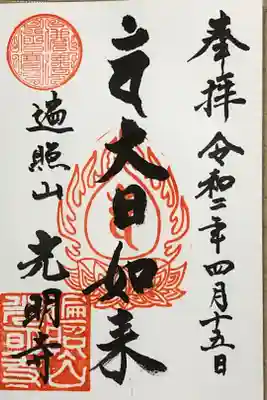 奉拝
令和二年四月十五日
大日如来
遍照山
光明寺